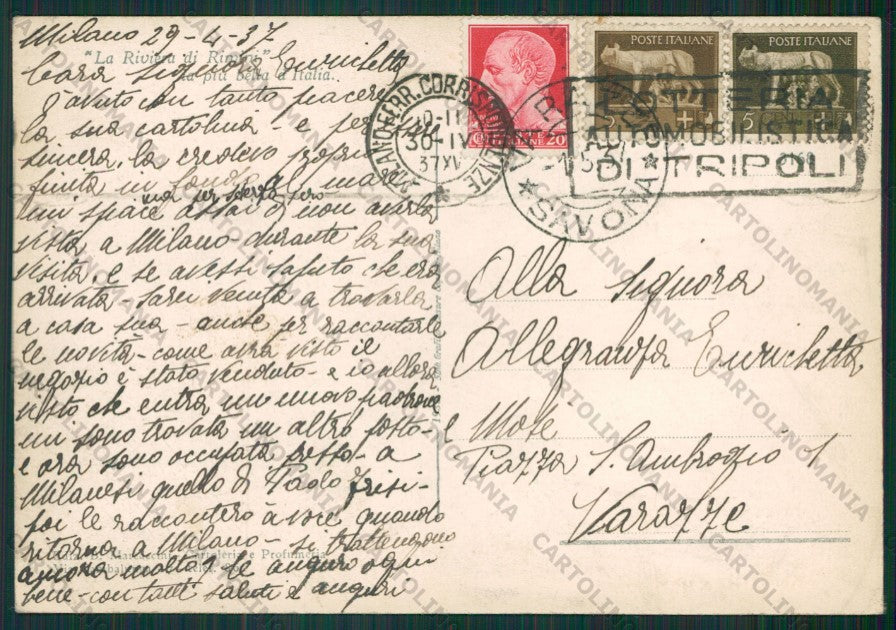 Milano 29-4-37
"La Riviera di Rimini"
Cara Sig. Enrichetta
la più bella d'Italia.
ò avuto con tanto piacere
la sua cartolina - e per
sincera, la credevo proprio
finita in fondo al mare
ma per scherzo però
mi spiace assai di non averla
vista a Milano durante la sua
visita, e se avessi saputo che era
arrivata - sarei venuta a trovarla
a casa sua - anche per raccontarle
le novità - come avrà visto il
negozio è stato venduto - e io allora
visto che entra un nuovo padrone
mi sono trovata un altro posto -
e ora sono occupata presso - a
Milanesi quello di Paolo
poi le racconterò a voce quando
ritorna a Milano - si trattengono
ancora molto, le auguro ogni
bene - con tanti saluti e auguri
Cartoleria e Profumeria
POSTE ITALIANE
POSTE ITALIANE
20
5
5
MILANO FERR. CORRISPONDENZE
30-IV
37 XV
SAVONA
LOTTERIA
AUTOMOBILISTICA
DI TRIPOLI
Alla Signora
Allegranza Enrichetta
e Mose
Piazza S. Ambrogio 1
Varazze
CARTOLINOMANIA